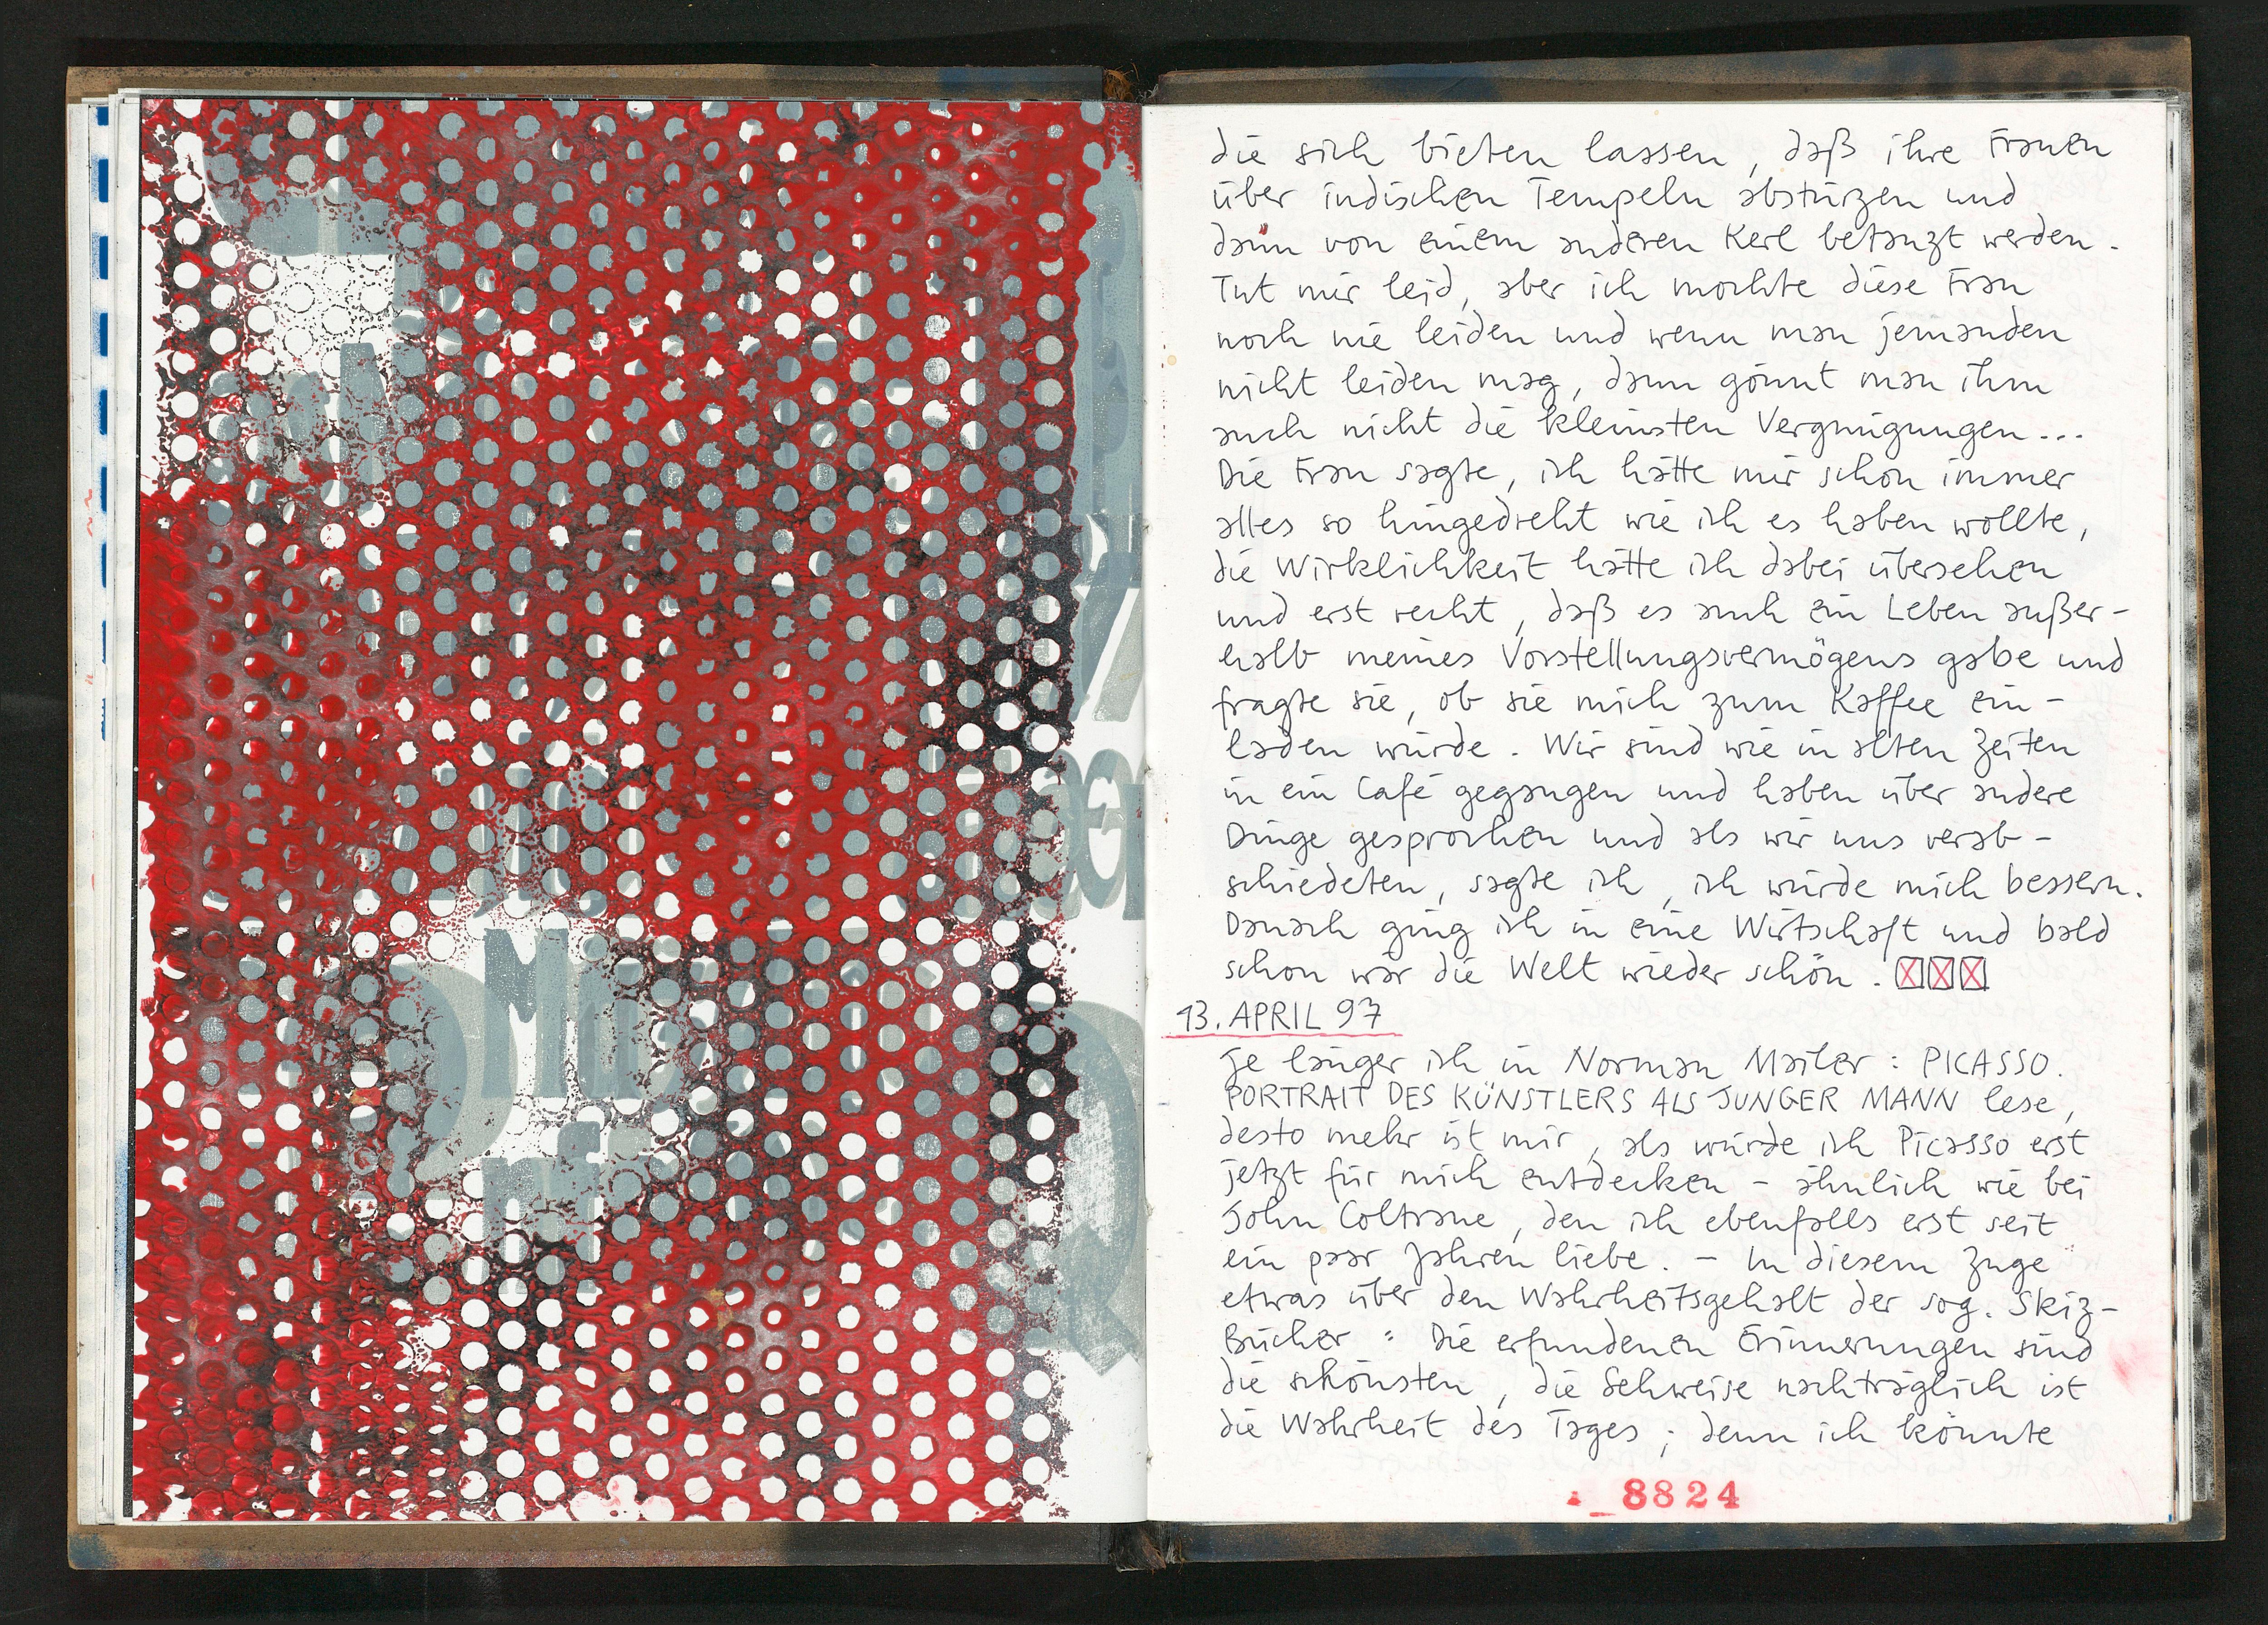 die sich bieten lassen, daß ihre Frauen
über indischen Tempeln abstürzen und
dann von einem anderen Kerl betanzt werden.
Tut mir leid, aber ich mochte diese Frau
noch nie leiden und wenn man jemanden
nicht leiden mag, dann gönnt man ihm
auch nicht die kleinsten Vergnügungen...
Die Frau sagte, ich hätte mir schon immer
alles so hingedreht wie ich es haben wollte,
die Wirklichkeit hätte ich dabei übersehen
und erst recht, daß es auch ein Leben außer-
halb meines Vorstellungsvermögens gäbe und
fragte sie, ob sie mich zum Kaffee ein-
laden würde. Wir sind wie in alten Zeiten
in ein Café gegangen und haben über andere
Dinge gesprochen und als wir uns verab-
schiedeten, sagte ich, ich würde mich bessern.
Danach ging ich in eine Wirtschaft und bald
schon war die Welt wieder schön. XXX
13. APRIL 97
Je länger ich in Norman Mailer: PICASSO.
PORTRAIT DES KÜNSTLERS ALS JUNGER MANN lese,
desto mehr ist mir, als würde ich Picasso erst
jetzt für mich entdecken – ähnlich wie bei
John Coltrane, den ich ebenfalls erst seit
ein paar Jahren liebe. – In diesem Zuge
etwas über den Wahrheitsgehalt der sog. Skiz-
Bücher: Die erfundenen Erinnerungen sind
die schönsten, die Sehweise nachträglich ist
die Wahrheit des Tages; denn ich könnte
8824